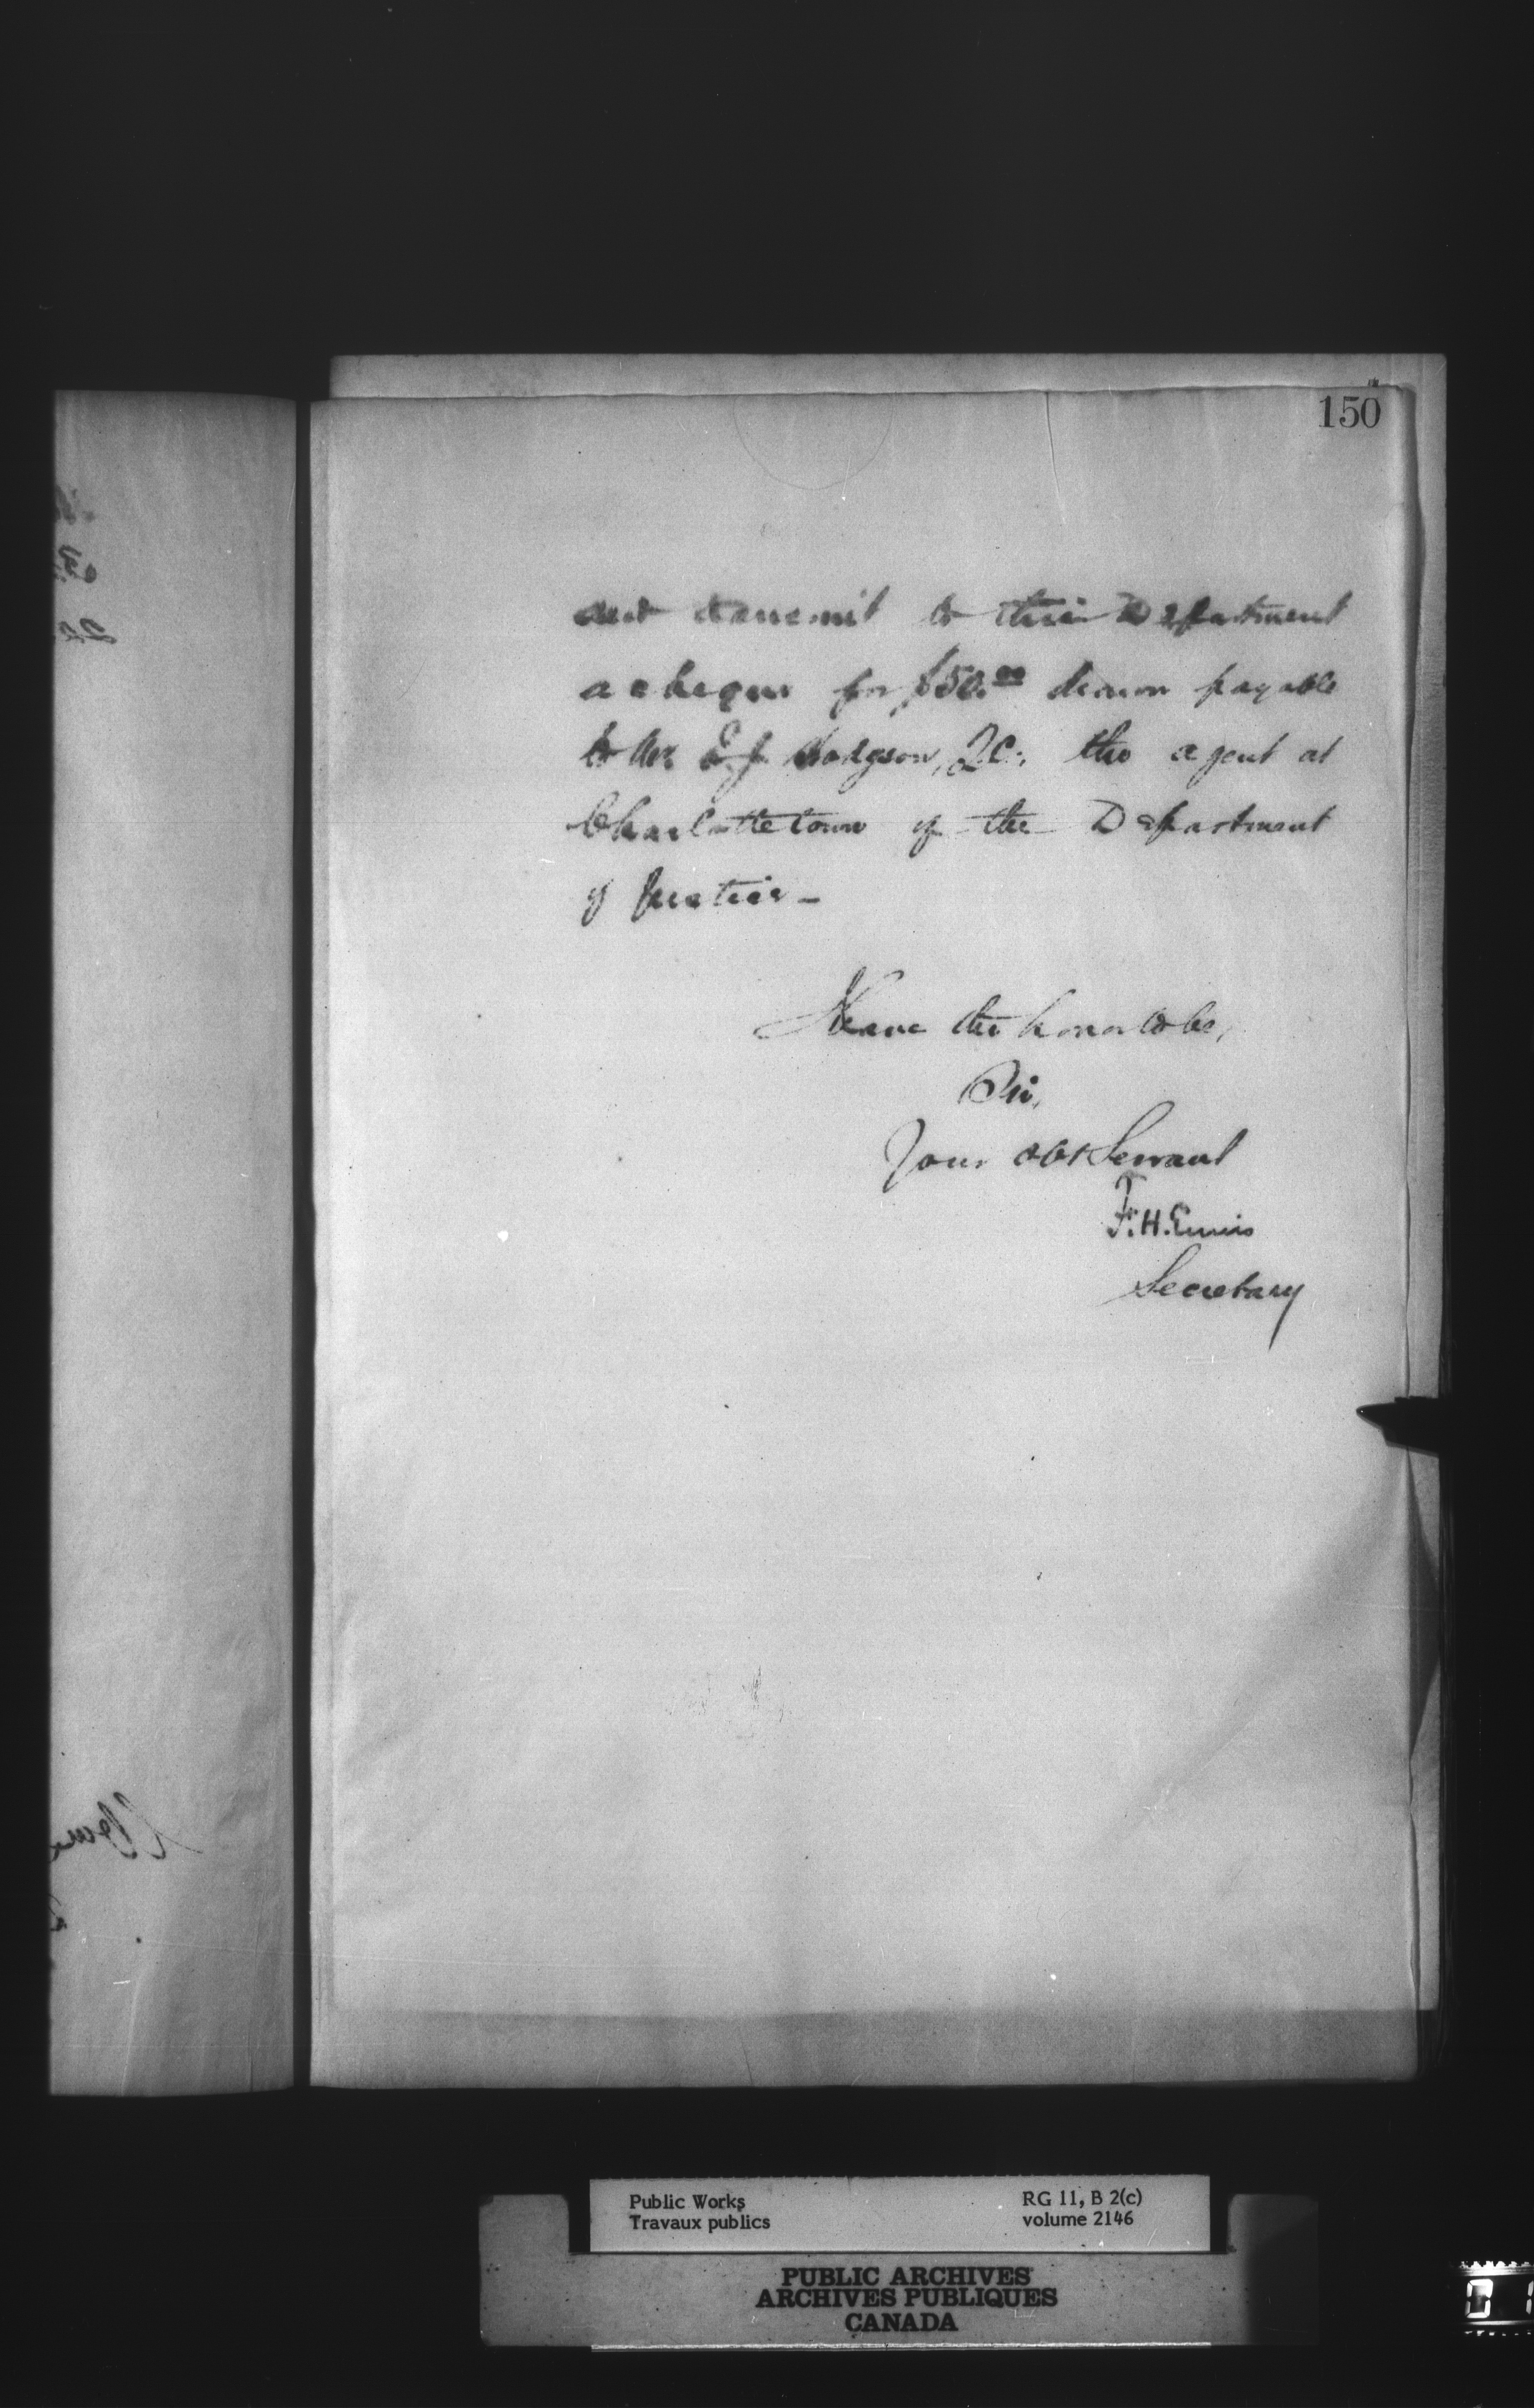 150
and transmit to this Department
a cheque for $50.00 drawn payable
to Mr E. J. Hodgson, Q.C. the agent at
Charlottetown of the Department
of Justice—
I have the honor to be,
Sir,
Your obt Servant
F. H. Ennis
Secretary
Public Works
Travaux publics
RG 11, B 2(c)
volume 2146
PUBLIC ARCHIVES
ARCHIVES PUBLIQUES
CANADA